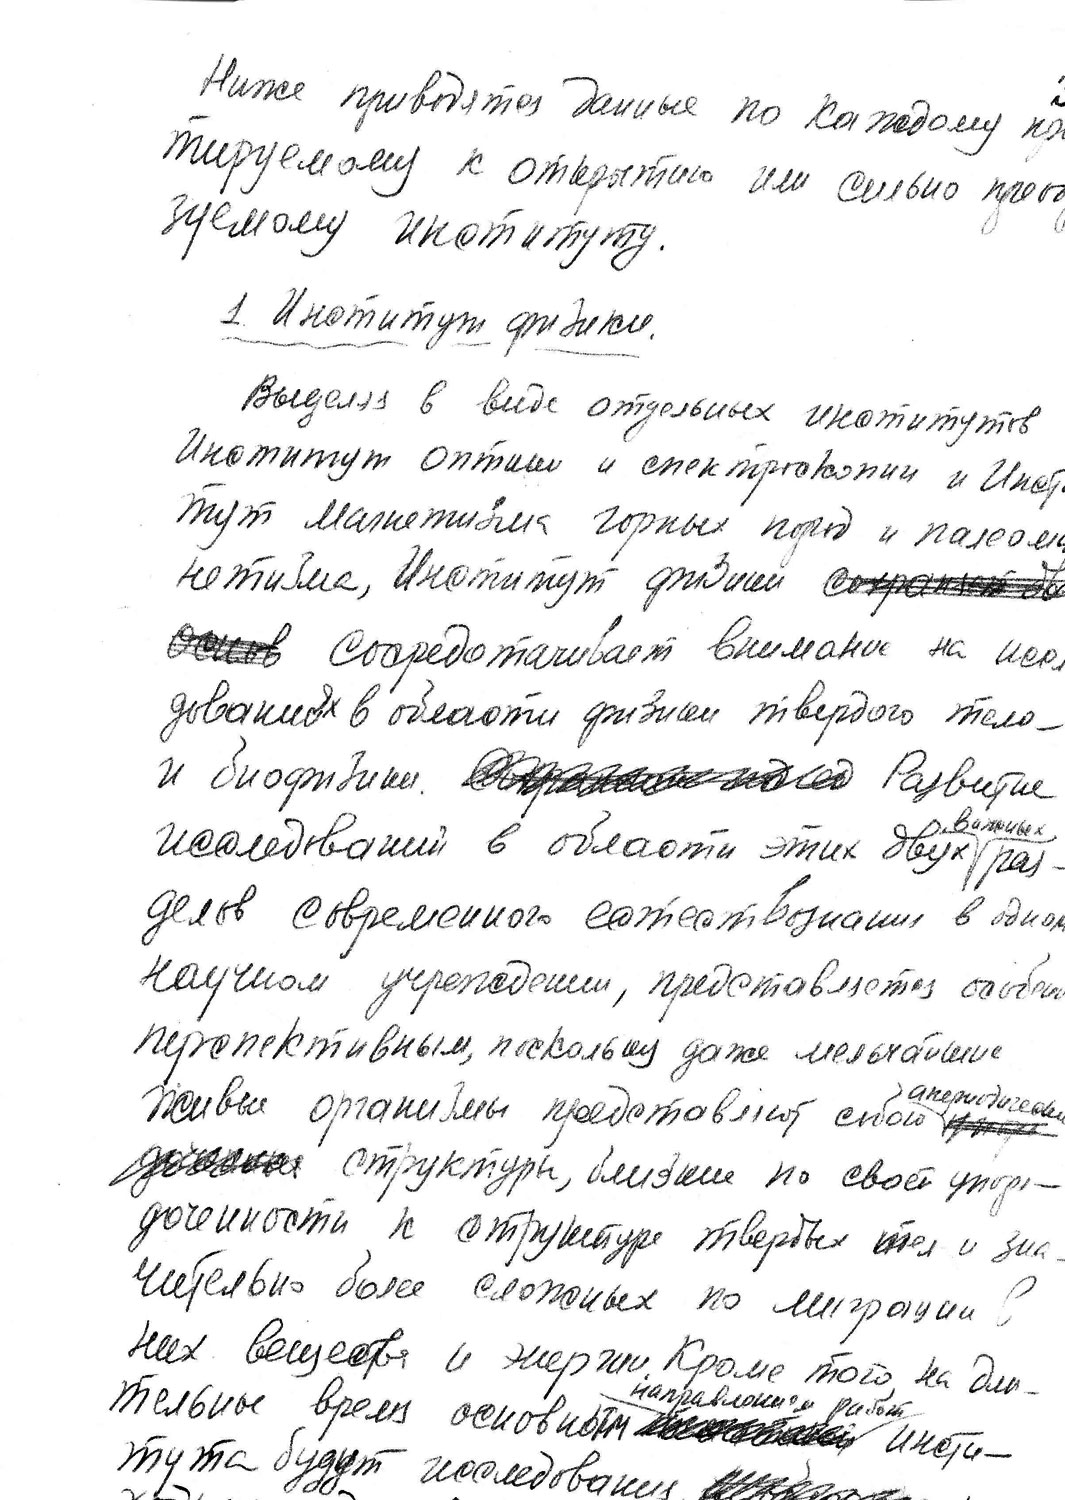 Ниже приводятся данные по каждому
тируемому к открытию или сильно преоб
зуемому институту.
1. Институт физики.
Выделяя в виде отдельных институтов
Институт оптики и спектроскопии и Инст
тут магнетизма горных пород и палеома
нетизма, Институт физики
сосредотачивает внимание на иссл
дованиях в области физики твердого тела
и биофизики. Развитие
исследований в области этих двух важных раз-
делов современного естествознания в одном
научном учреждении, представляется особенно
перспективным, поскольку даже мельчайшие
живые организмы представляют собою апериодические
структуры, близкие по своей упоря-
доченности к структуре твердых тел и зна-
чительно более сложных по миграции в
них вещества и энергии. Кроме того на дли-
тельные время основным направлением работ инсти-
тута будут исследования